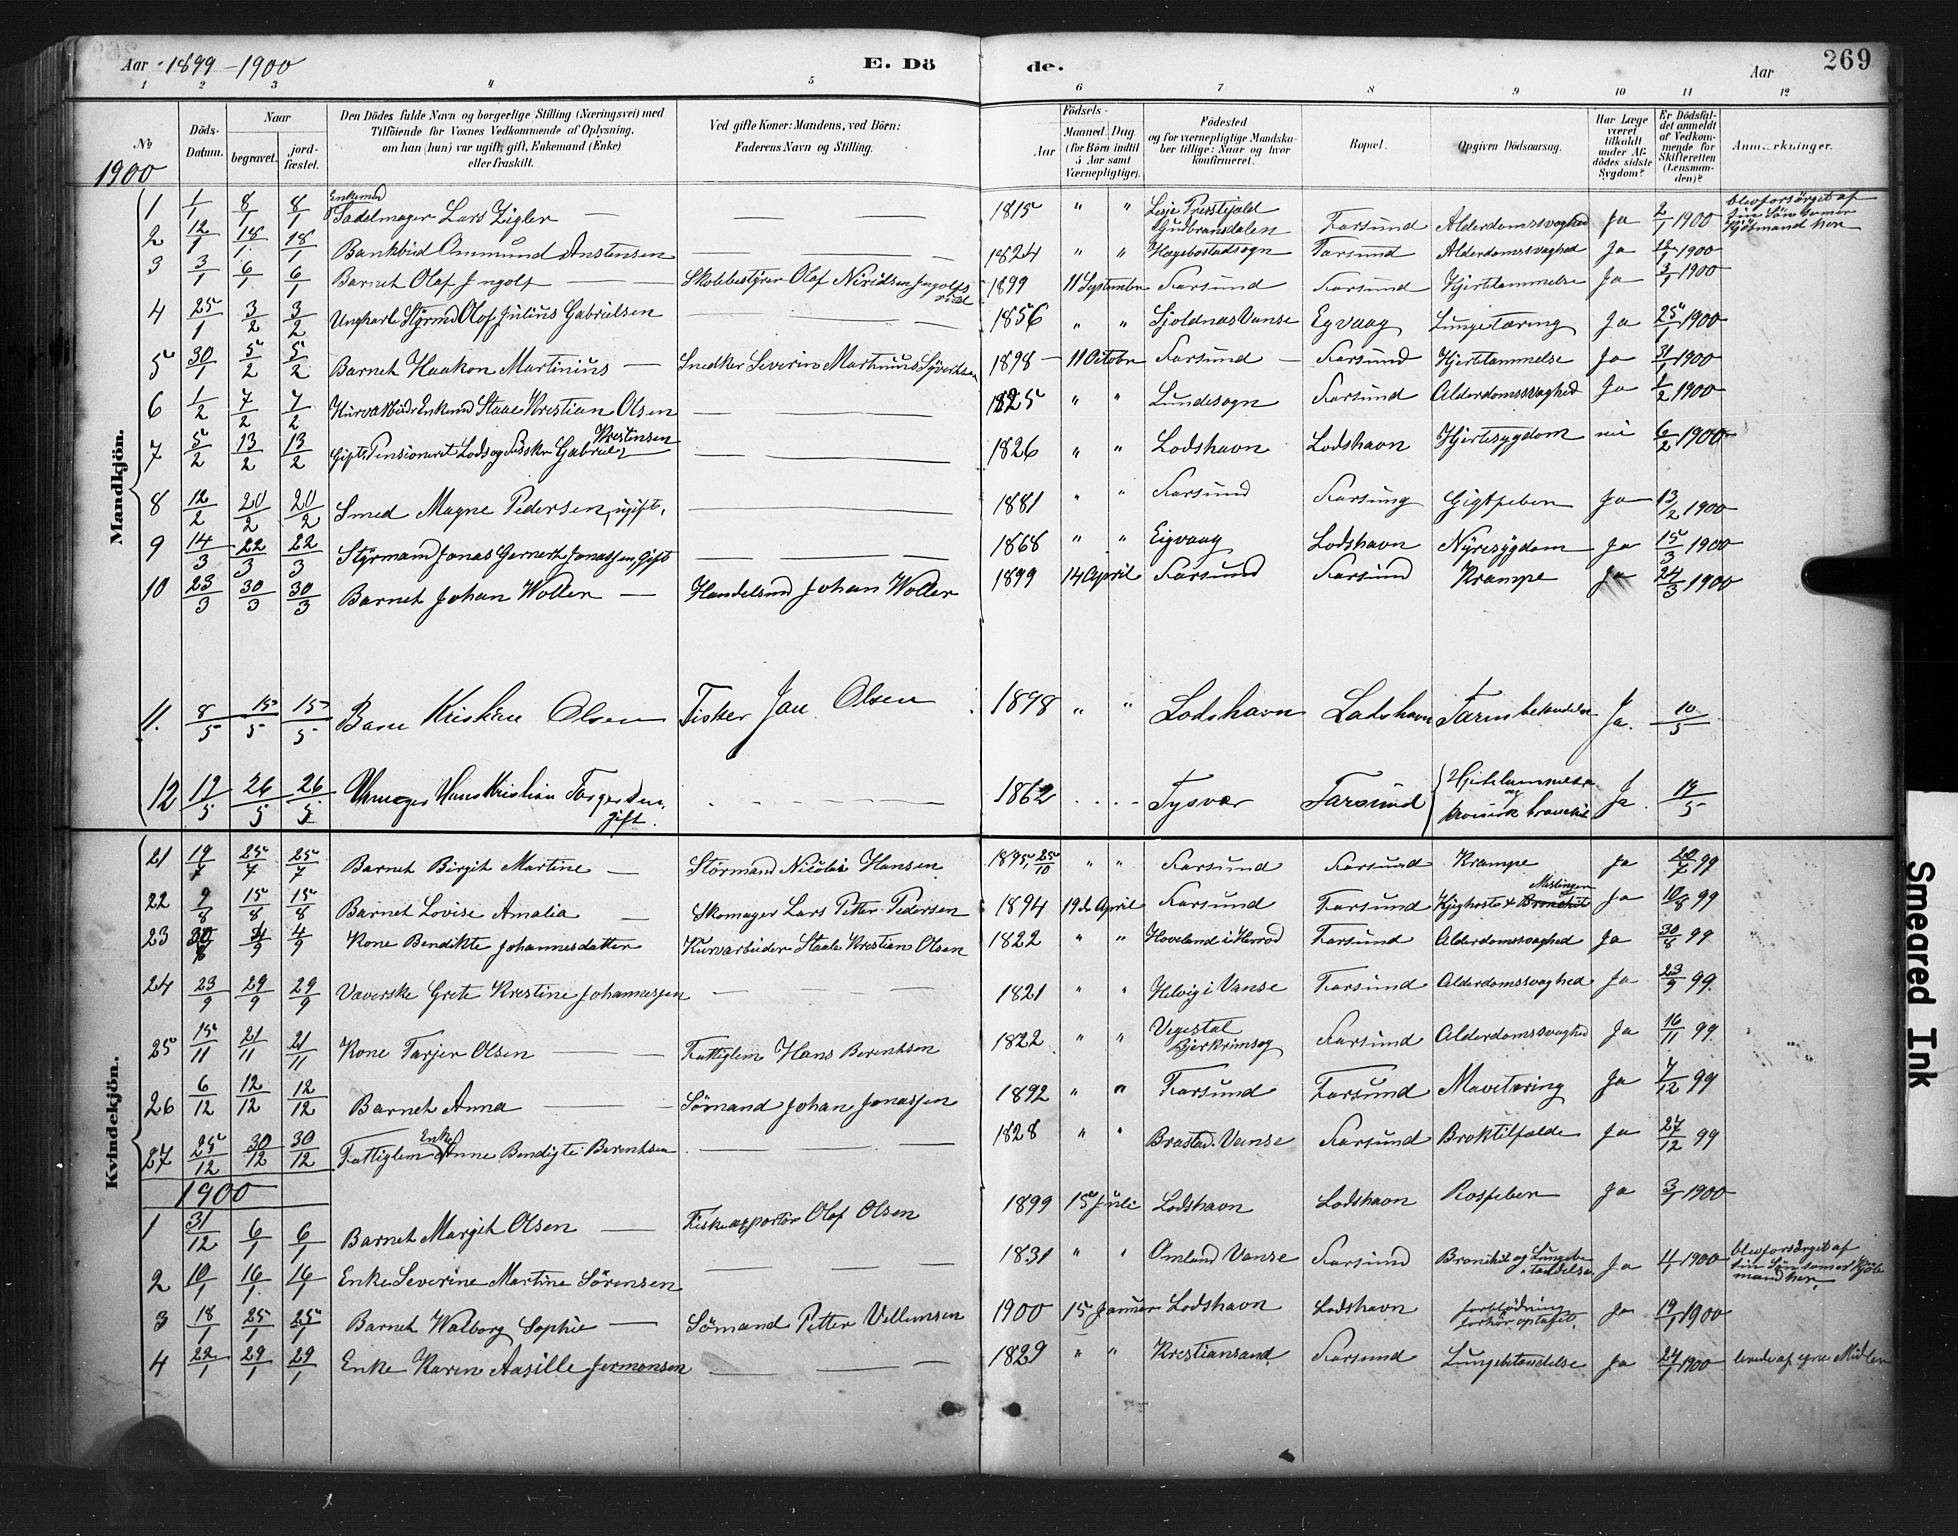 Aar 1899-1900 E. Dö de. Aar 269
1 2 3 4 5 6 7 8 9 10 11 12
No
Döds-Datum.
Naar
begravet. jord-fæstet.
Den Dödes fulde Navn og borgerlige Stilling (Næringsvei) med
Tilföiende for Voxnes Vedkommende af Oplysning,
om han (hun) var ugift, gift, Enkemand (Enke)
eller fraskilt.
Ved gifte Koner: Mandens, ved Börn:
Faderens Navn og Stilling.
Födsels-
Aar
Maaned. Dag
(for Börn indtil
5 Aar samt
Værnepligtige).
Födested
og for værnepligtige Mandska-
ber tillige: Naar og hvor
konfirmeret.
Bopæl.
Opgiven Dödsaarsag.
Har Læge
været
tilkaldt
under Af-
dödes sidste
Sygdom?
Er Dödsfal-
det anmeldt
af Vedkom-
mende for
Skifteretten
(Lensman-
den)?
Anmærkninger.
1900
Mandkjön.
1 1/1 8/1 8/1 Enkemd Sadelmager Lars Zigler — — — 1815 " " Lesje Præstegjeld Gudbransdalen Farsund Alderdomssvaghed Ja 2/1 1900 blev forsörget af sin Sön som er Kjöbmand her
2 12/1 18/1 18/1 Bankbud Ommund Anstensen — — — 1824 " " Hægebostadsogn Farsund Alderdomssvaghed Ja 12/1 1900
3 3/1 6/1 6/1 Barnet Olaf Ingolf — — Skobbestyrer Olaf 1899 11 September Farsund Farsund Hjertelammelse Ja 3/1 1900
4 25/1 3/2 3/2 Ungkarl Styrmd Olof Julius Gabrielsen — — — 1856 " " Vanse Egvaag Lungetæring Ja 25/1 1900
5 30/1 5/2 5/2 Barnet Haakon Martinius — Snedker Severin Martinius Syvertsen 1898 — 11 Octobr Farsund — Farsund Hjertelammelse Ja 31/1 1900
6 1/2 7/2 7/2 Kurvarbeider Enkemd Staale Kristian Olsen — — 1825 " " Lundesogn Farsund Alderdomssvaghed Ja 1/2 1900
7 5/2 13/2 13/2 Gift Pensioneret Lods og Fisker Gabriel Krestensen — — 1826 " " Lodshavn Lodshavn Hjertesygdom nei 6/2 1900
8 12/2 20/2 20/2 Smed Magne Pedersen, ugift, — 1881 " " Farsund Farsung Gigtfeber Ja 13/2 1900
9 14/3 22/3 22/3 Styrmand Jonas Gerners Jonassen, gift — — 1868 " " Eigvaag Lodshavn Nyresygdom Ja 15/3 1900
10 23/3 30/3 30/3 Barnet Johan Woller — Handelsmd Johan Woller 1899 14 April Farsund Farsund Krampe Ja 24/3 1900
11. 8/5 15/5 15/5 Barn Kristine Olsen Fisker Jan Olsen 1898 " " Lodshavn Lodshavn Tarmbetændelse Ja. 10/5
12 17/5 26/5 26/5 Hans Kristian Torgersen. gift. - - - - - 1862 . . . . Tysvær Farsund Hjertelammelse og kronisk bronchit Ja. 19/5
Kvindekjön.
21 19/7 25/7 25/7 Barnet Birgit Martine — Störmand Nicolai Hansen 1895 25/10 " " Farsund Farsund Krampe Ja 20/7 99
22 9/8 15/8 15/8 Barnet Lovise Amalia — Skomager Lars Petter Pedersen 1894 19de April Farsund Farsund Kighoste & Meslinger Bronchit Ja 10/8 99
23 30/8 4/9 4/9 Kone Bendikte Johannesdatter Kurvarbeider Staale Krestian Olsen 1822 " " Hoveland i Herrod Farsund Alderdomssvaghed Ja 30/8 99
24 23/9 29/9 29/9 Væverske Grete Krestine Johannessen — — — 1821 " " Helvig i Vanse Farsund Alderdomssvaghed Ja 23/9 99.
25 15/11 21/11 21/11 Kone Tarjer Olsen — — Fattiglem Hans Berentsen 1822 " " Vegestal Bjerkrimsog Farsund Alderdomssvaghed Ja 16/11 99
26 6/12 12/12 12/12 Barnet Anna — — Sömand Johan Jonassen 1892 " " Farsund Farsund Mavetæring Ja 7/12 99
27 25/12 30/12 30/12 Fattiglem Enke Anne Bendigte Berentsen — — — 1828 " " Brastad. Vanse Farsund Broktilfælde Ja 27/12 99
1900
1 31/12 6/1 6/1 Barnet Margit Olsen — Fiskeexportör Olof Olsen 1899 15 Juli Lodshavn Lodshavn Rosfeber Ja 3/1 1900
2 10/1 16/1 16/1 Enke Severine Martine Sörensen — — — 1831 " " Omland Vanse Farsund Bronchit og Lungebetændelse Ja 11/1 1900 blev forsörget af sin Sön som er Kjöbmand her
3 18/1 25/1 25/1 Barnet Walborg Sophie — Sömand Petter Villumsen 1900 15 Januar Lodshavn Lodshavn forblödning Ja 19/1 1900
4 22/1 29/1 29/1 Enke Karen Aasille Jermonsen — — — 1829 " " Krestiansand Farsund Lungebetændelse Ja 24/1 1900 levede af egne Midler
Smeared Ink